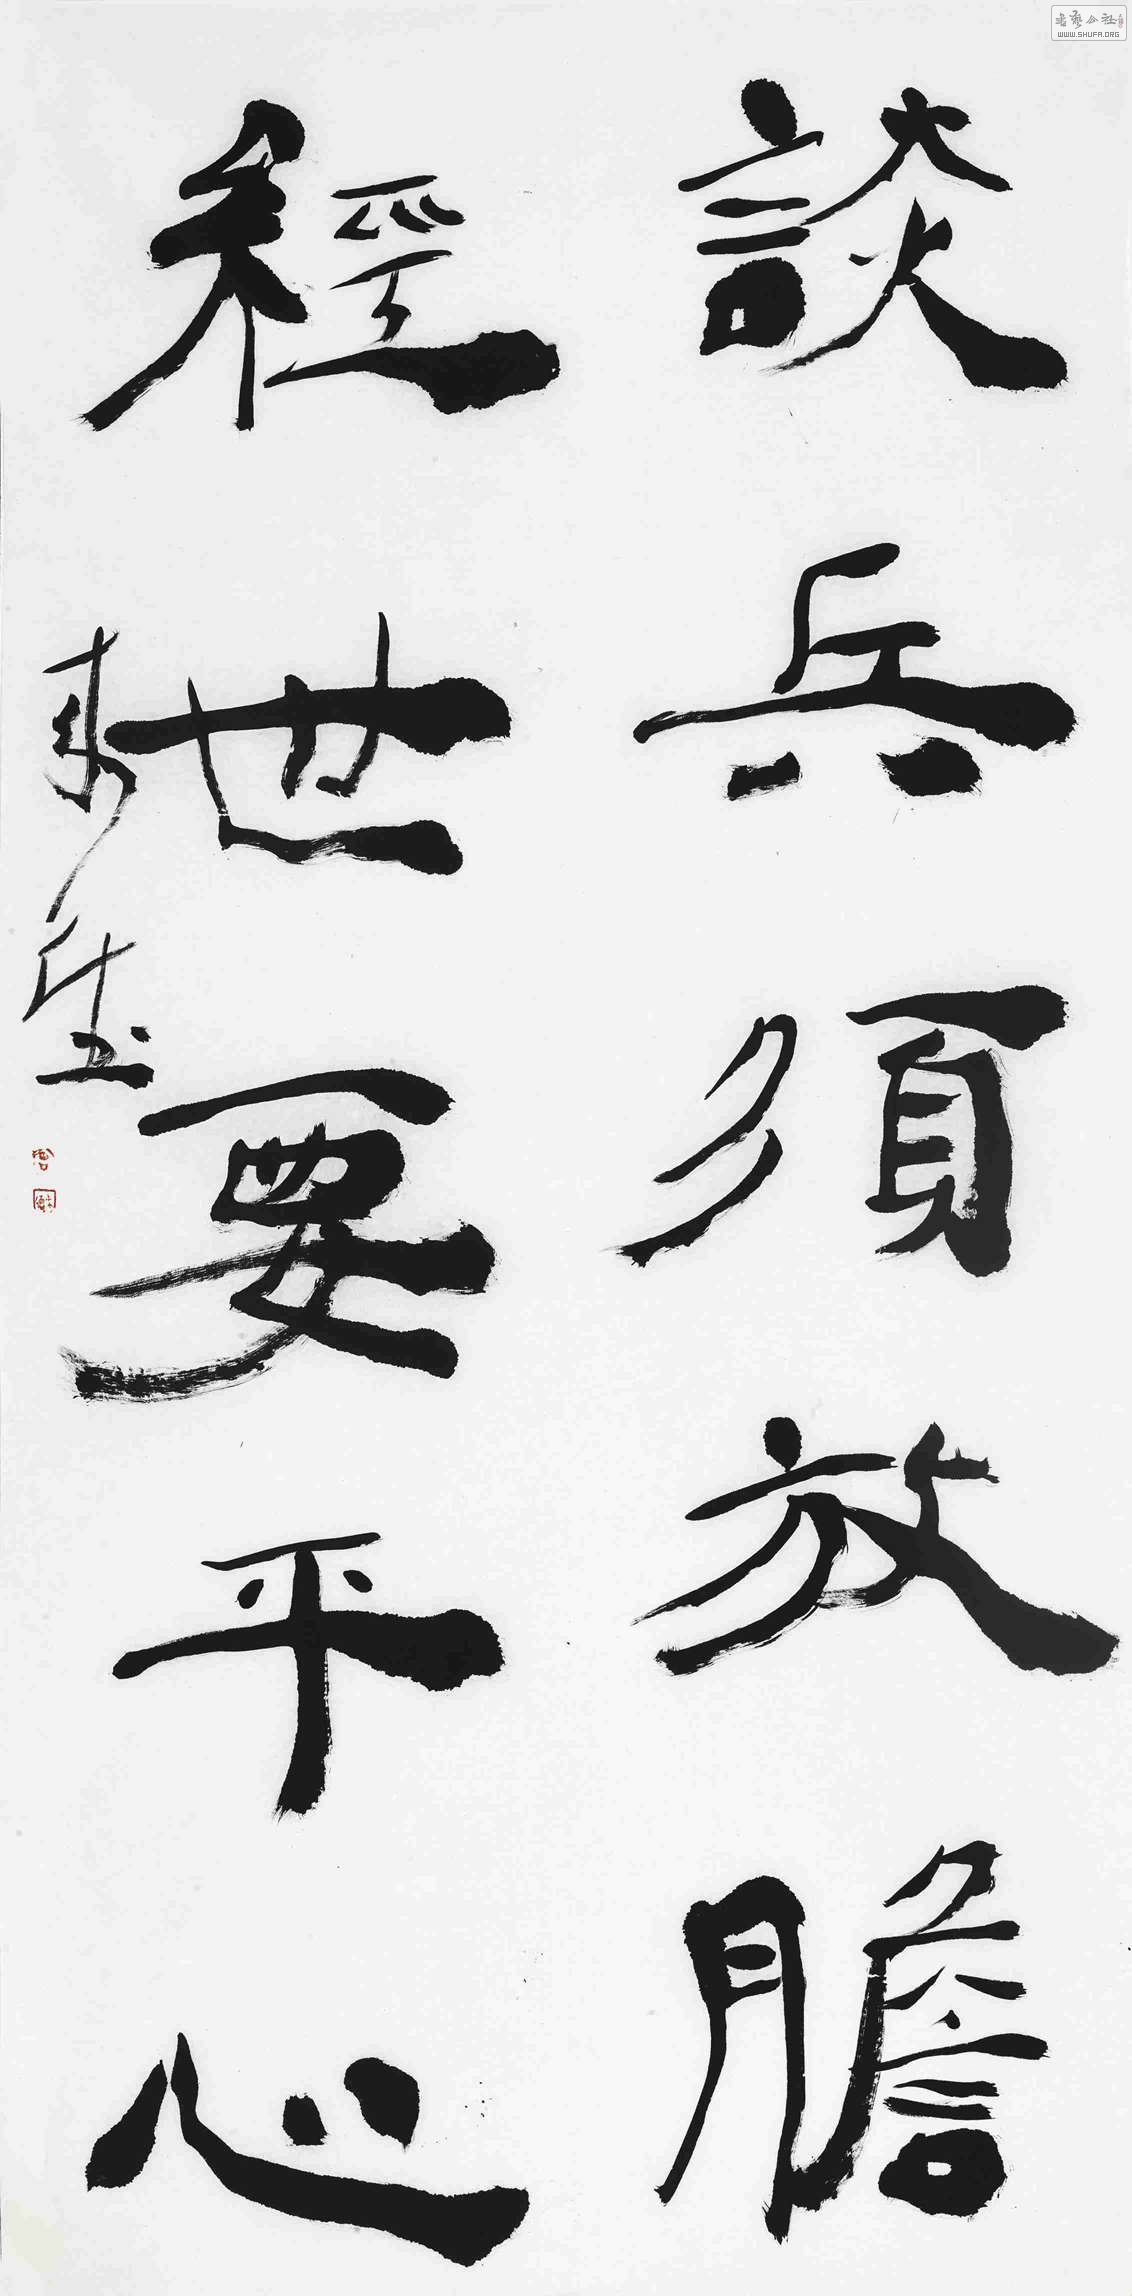 談兵須放膽
經世要平心
来德
書藝公社
WWW.SHUFA.ORG